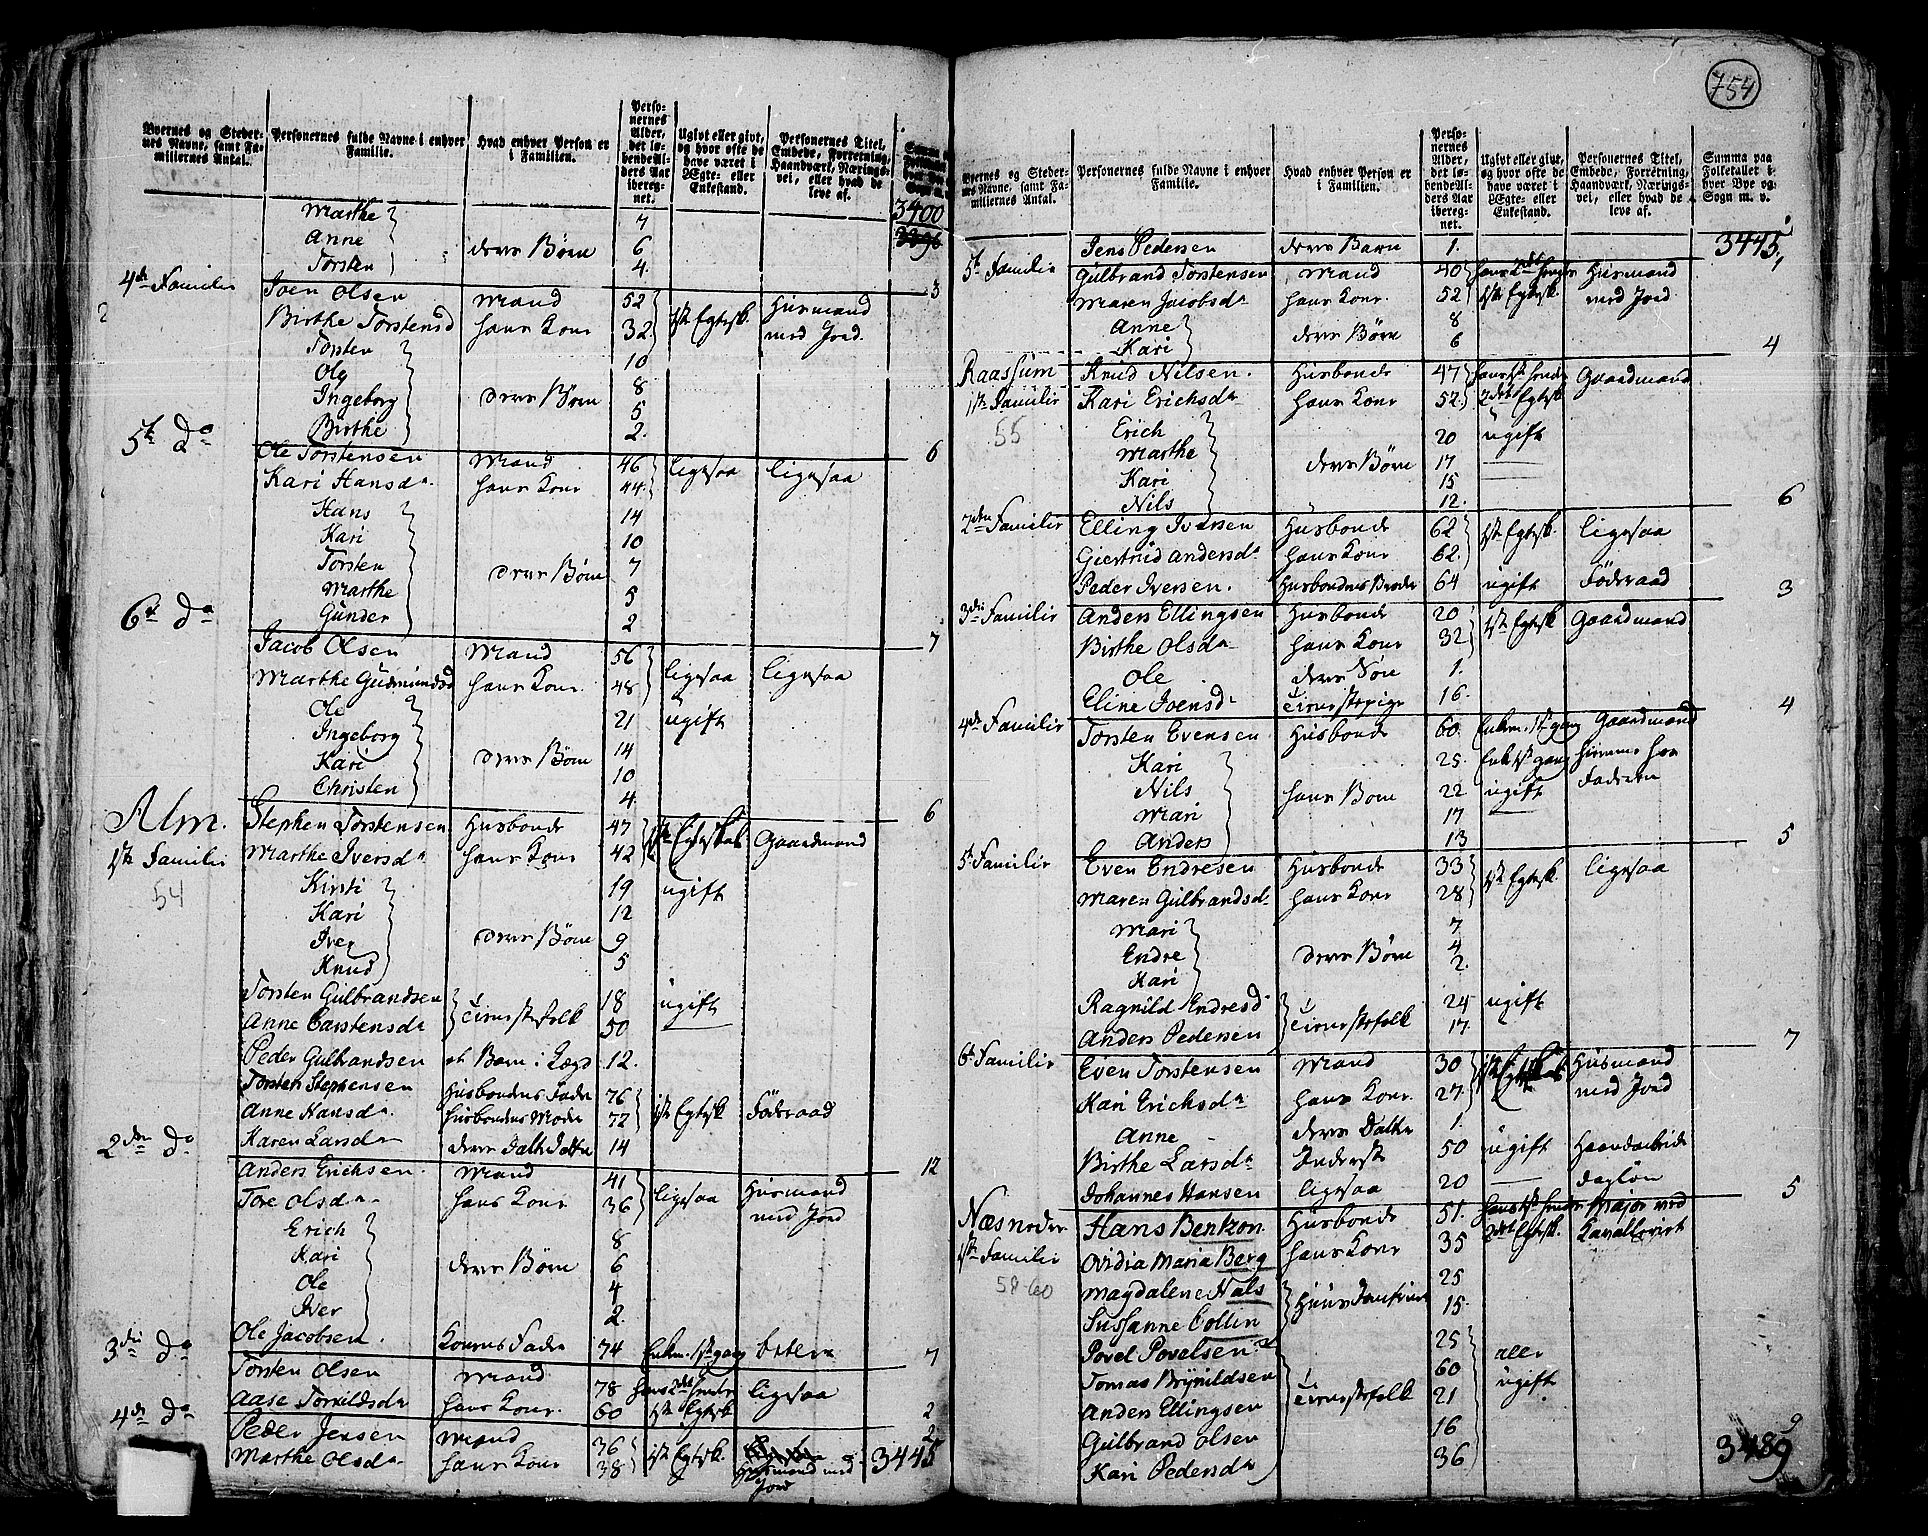 Byernes og Stedernes Navne, samt Familiernes Antal.
Personernes fulde Navne i enhver Familie.
Hvad enhver Person er i Familien.
Personernes Alder, det løbende Alders Aar iberegnet.
Ugivt eller givt, og hvor ofte de have været i Egte- eller Enkestand.
Personernes Titel, Embede, Forretning, Haandværk, Næringsvei, eller hvad de leve af.
3400
Marthe 7
Anne deres Børn 6
Torsten 4
4de Familie Joen Olsen Mand 52 1ste Egtesk. Huusmand 3
Birthe Torstensd hans Kone 32 med Jord
Torsten 10
Ole 8
Ingeborg deres Børn 5
Birthe 2
5te Do Ole Torstensen Mand 46 ligesaa ligesaa 6
Kari Hansda hans Kone 44
Hans 14
Kari 10
Torsten deres Børn 7
Marthe 5
Gunder 2
6te Do Jacob Olsen Mand 56 ligesaa ligesaa 7
Marthe Gudmundsd hans Kone 48
Ole 21 ugift
Ingeborg 14
Kari deres Børn 10
Christen 4
Alm. Stephen Torstensen Husbonde 47 1ste Egteskab Gaardmand 6
1ste Familie Marthe Iversda hans Kone 42
54
Kirsti 19 ugift
Kari 12
Iver deres Børn 9
Knud 5
Torsten Gulbrandsen 18 ugift
Anne Carstensda Tienestefolk 50
Peder Gulbrandsen et Barn i Lægd 12.
Torsten Stephensen Husbondens Fader 76 1ste Egtesk Føderaad
Anne Hansda Husbondens Moder 72
Karen Larsda deres Datterdatter 14
2den Do Anders Erichsen Mand 41 ligesaa Huusmand 12
Tore Olsda hans Kone 36 med Jord
Erich 8
Kari deres Børn 6
Ole 4
Iver 2.
Ole Jacobsen Konens Fader 74 Enkem. 1ste gang
3die Do Torsten Olsen Mand 78 ligesaa 7
Aase Torkildsda hans Kone 60 1ste Egtesk
4de Do Peder Jensen Mand 36 1ste Egtesk. Huusmand med Jord 2
Marthe Olsda hans Kone 38 2
3445
754
Byernes og Stedernes Navne, samt Familiernes Antal.
Personernes fulde Navne i enhver Familie.
Hvad enhver Person er i Familien.
Personernes Alder, det løbende Alders Aar iberegnet.
Ugivt eller givt, og hvor ofte de have været i Egte- eller Enkestand.
Personernes Titel, Embede, Forretning, Haandværk, Næringsvei, eller hvad de leve af.
Summa paa Folketallet i hver Bye og Sogn m. v.
Jens Pedersen deres Barn 1. 3445
5te Familie Gulbrand Torstensen Mand 40 hans 2det hendes Huusmand
Maren Jacobsda hans Kone 52 1ste Egtesk. med Jord
Anne 8
Kari deres Børn 6
Raassum Knud Nilsen Husbonde 47 hans 1ste hendes Gaardmand 4
1ste Familie Kari Erichsda hans Kone 52 2det Egtesk
55
Erich 20 ugift
Marthe deres Børn 17
Kari 15
Nils 12.
2den Familie Elling Iversen Husbonde 62 1ste Egtesk. ligesaa 6
Giertrud Andersda hans Kone 62
Peder Iversen Husbondens Broder 64 ugift Føderaad
3die Familie Anders Ellingsen Husbonde 20 1ste Egtesk Gaardmand 3
Birthe Olsda hans Kone 32
Ole deres Søn 1.
Eline Joensd Tienestepige 16.
4de Familie Torsten Evensen Husbonde 60 Enkem. 1ste gang Gaardmand 4
Kari 25. Enke 1ste gang hiemme hos Faderen
Nils hans Børn 22 ugift
Mari 17
Anders 13
5te Familie Even Endresen Husbonde 33 1ste Egtesk. ligesaa 5
Maren Gulbrandsd hans Kone 28
Mari 7
Endre deres Børn 4
Kari 2.
Ragnild Endresd 24 ugift
Anders Pedersen Tienestefolk 17
6te Familie Even Torstensen Mand 30 1ste Egteskab Huusmand 7
Kari Erichsda hans Kone 27 med Jord
Anne deres Datter 1.
Birthe Larsda Inderste 50 ugift Haandarbeide
Johannes Hansen ligesaa 20 Dagløn
Næsnedre Hans Benkon Husbonde 51. hans 1ste hendes Major ved 5
1ste Familie Ovidia Maria Berg hans Kone 35 2det Egtesk. Kavalleriet
58-60
Magdalene Nals 25
Sussanne Collin Huus Jomfruer 15.
Povel Povelsen 25 alle
Tomas Brynildsen 60 ugift
Anders Ellingsen Tienestefolk 21
Gulbrand Olsen 16
Kari Pedersda 36
9
3489